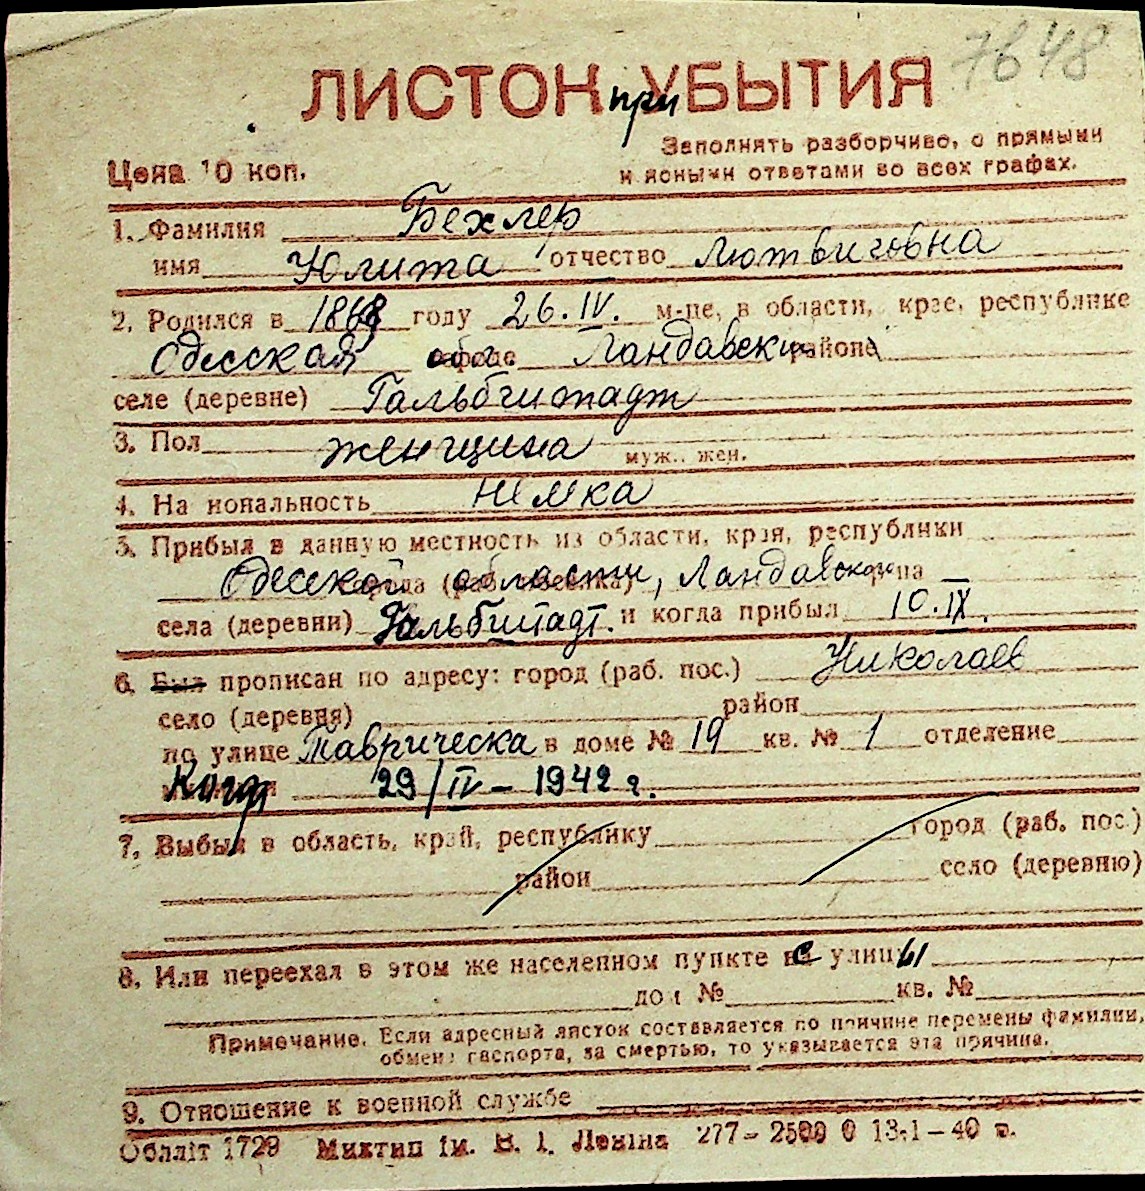 7648
ЛИСТОК при УБЫТИЯ
Заполнять разборчиво, с прямыми
Цена 10 коп.
и ясными ответами во всех графах.
1. Фамилия Бехлер
имя Юлита отчество Лютвиговна
2. Родился в 1868 году 26.IV. м-це, в области, крае, республике
Одесская обл. Ландавски района
селе (деревне) Гальбштадт
3. Пол женщина муж., жен.
4. На иональность немка
5. Прибыл в данную местность из области, края, республики
Одесской области, Ландавской р-на —
села (деревни) Гальбштадт. и когда прибыл 10.IX.
6. Был прописан по адресу: город (раб. пос.) Николаев
село (деревня) район
по улице Таврическа в доме № 19 кв. № 1 отделение
Когда 29/IV – 1942 г.
7. Выбыл в область, край, республику город (раб. пос.)
район село (деревню)
8. Или переехал в этом же населенном пункте с улицы
дом № кв. №
Примечание. Если адресный листок составляется по причине перемены фамилии,
обмена паспорта, за смертью, то указывается эта причина.
9. Отношение к военной службе
Обллiт 1729 Миктип iм. В. I. Ленiна 277–2500 0 13-1–40 г.